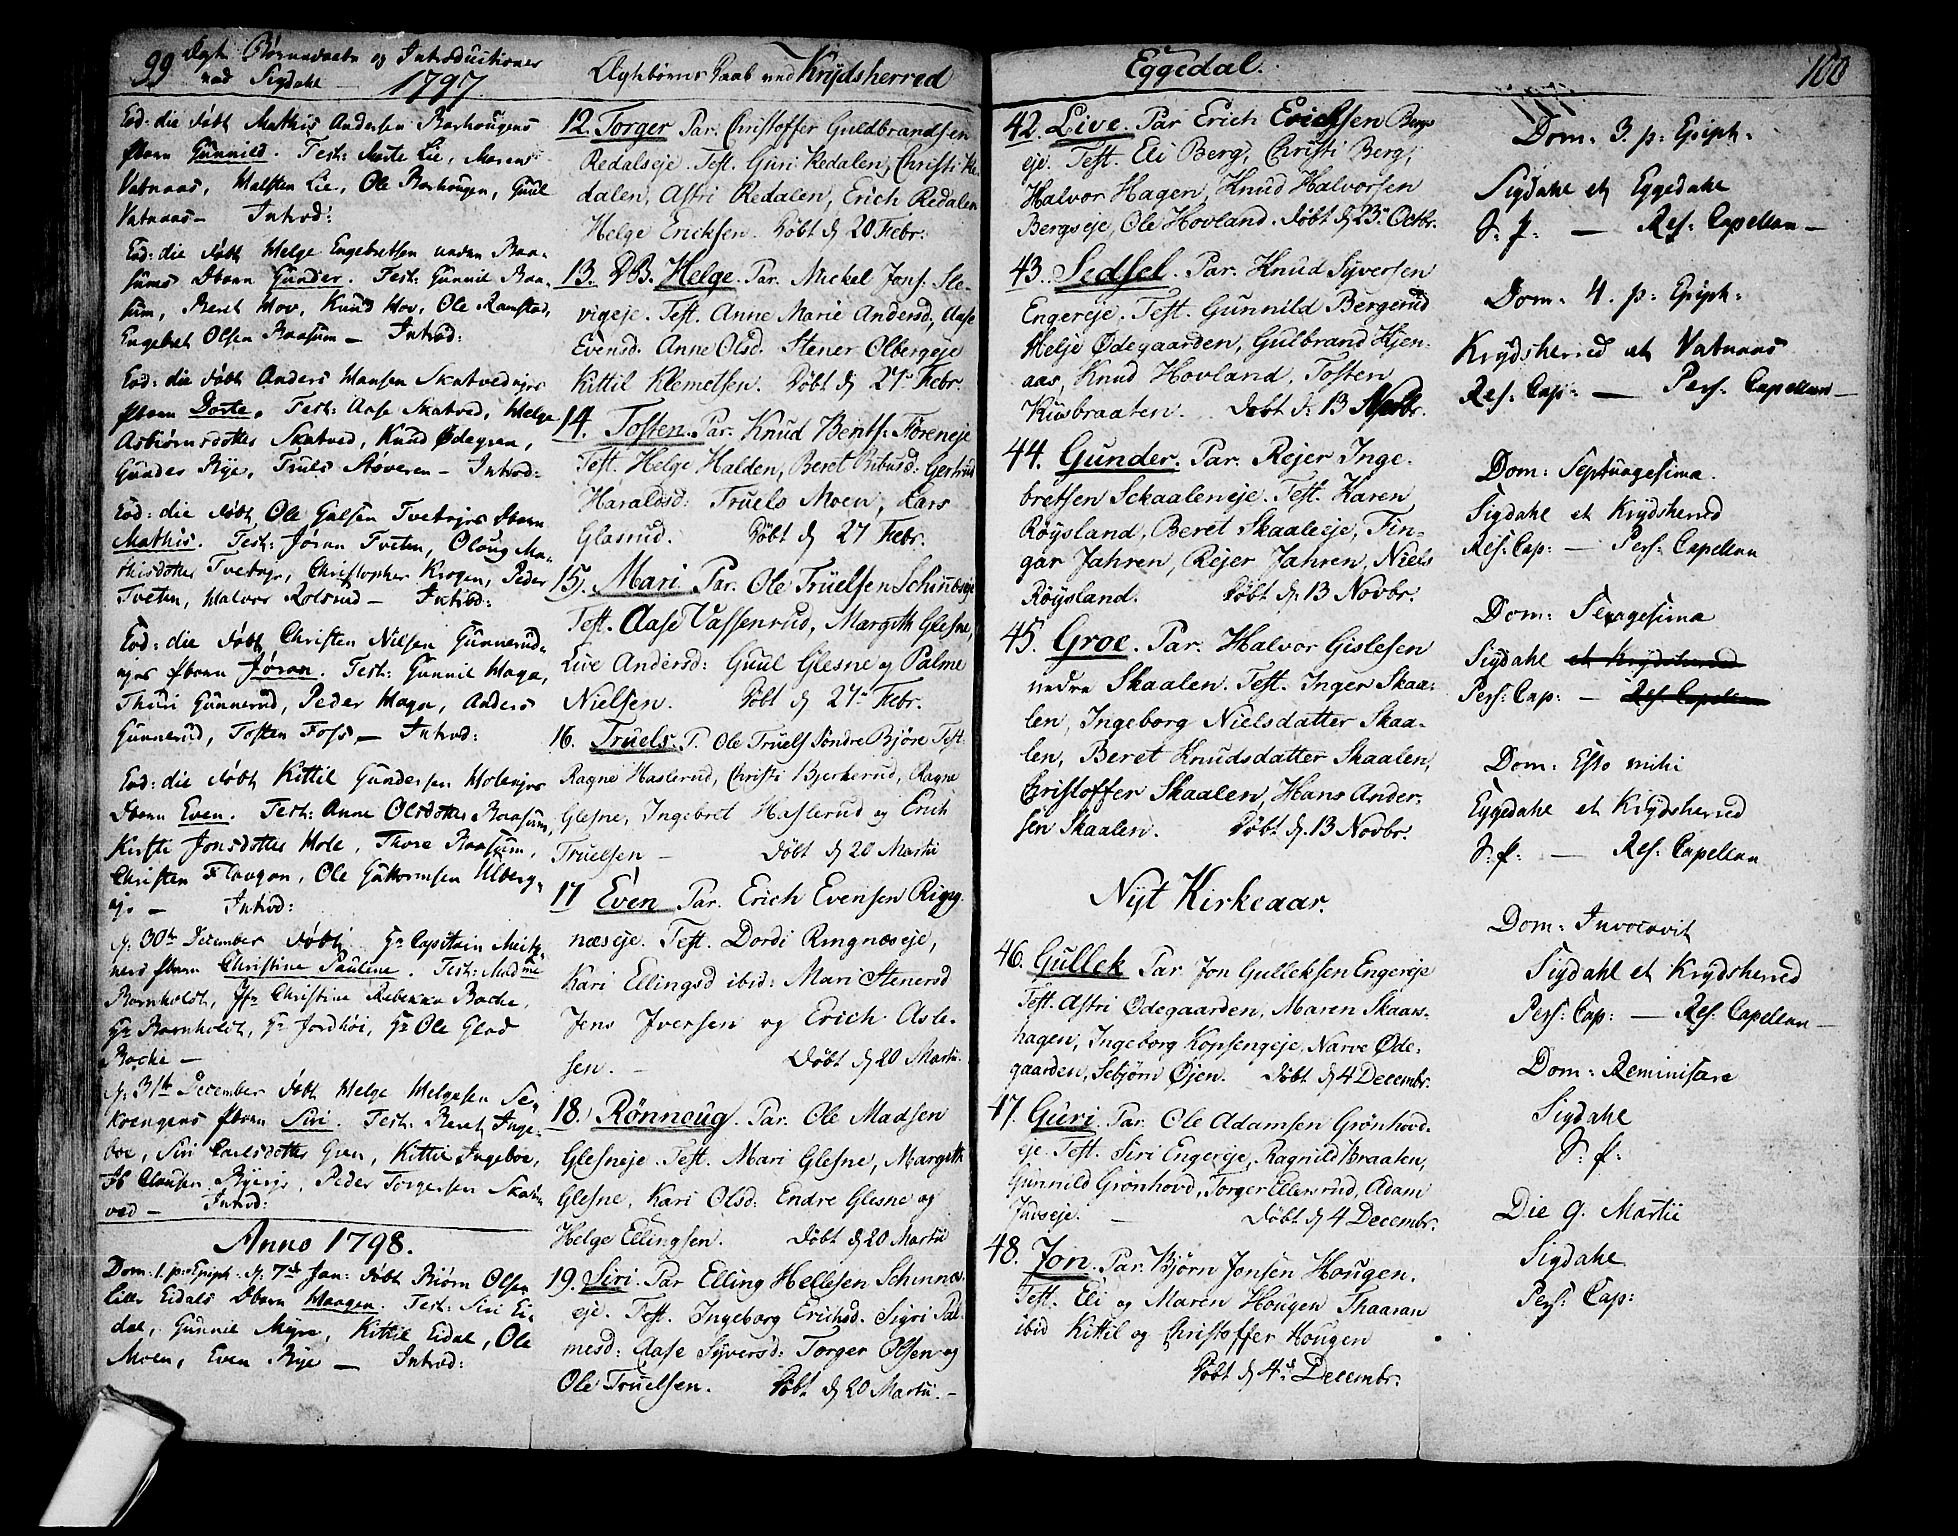 99 Ægte Børnedaab og Introductioner
ved Sigdahl 1797.
Eod: die døbt Mathis Andersen
Pbarn Gunnild. Test: Marte Lie, Maren
Vatnaas, Halsten Lie, Ole Gul
Vatnaas — Introd:
Eod: die døbt Helge Engebretsen neden Baa-
sums Dbarn Gunder. Test: Gunnil Baa-
sum, Beret Hov, Knud Hov, Ole Ramstad,
Engebret Olsen Baasum — Introd:
Eod: die døbt Anders Hansen Skatvedejes
Pbarn Dorte. Test: Aase Skatved, Helge
Asbiørnsdatter Skatved, Knud Ødegren,
Gunder Rye, Truls Støveren — Introd:
Eod: die døbt Ole Tvetejes Dbarn
Mathis. Test: Jøran Tveten, Oloug Ma-
thisdatter Tveteje, Christopher Krogen, Peder
Tveten, Halvor Rolsrud — Introd:
Eod: die døbt Christen Nilsen Gunnerud-
ejes Pbarn Jøran. Test: Gunnil Haga,
Thuri Gunnerud, Peder Haga, Anders
Gunnerud, Tosten Foss — Introd:
Eod: die døbt Kittil Gundersen Holeejes
Dbarn Even. Test: Anne Olsdatter Baasum,
Kirsti Jonsdatter Hole, Thore Baasum,
Christen Flaagan, Ole Guttormsen Ulberg-
ej. — Introd:
d: 30te December døbt Hr Capitain
Pbarn Christine Pauline. Test: Madme
Bornholdt, Jfr Christine Rebekka Bache,
Hr Bornholdt, Hr Jordhøi, Hr Ole Glad
Bache —
d: 31te December døbt Helge Helgesen
Pbarn Siri. Test: Beret Inge-
boe, Siri Carlsdatter Kittil Ingeboe,
Clausen Ryeeje, Peder Torgersen Skat-
ved — Introd:
Anno 1798.
Dom: 1. p: Epiph. d: 7de Jan: døbt Biørn Olsen
Lille Eidals Dbarn Haagen. Test: Siri Ei-
dal, Gunnil Myre, Kittil Eidal, Ole
Moen, Even Rye — Introd:
Ægtebørns Daab ved Krydsherred
12. Torger Par: Christoffer Guldbrandsen
Redalseje. Test. Guri Redalen, Christi Re-
dalen, Astri Redalen, Erich Redalen
Helge Ericksen. Döbt d 20 Febr:
13. DB. Helge. Par. Mickel Jons. Sle-
vigeje. Test. Anne Marie Andersd, Aase
Evensd. Anne Olsd. Stener Olbergeje
Kittil Klemetsen. Döbt d 27 Febr.
14. Tosten. Par. Knud Bents: Föreneje
Test, Helge Halden, Beret Bibusd: Gertrud
Haraldsd: Truels Moen, Lars
Glamud. Döbt d 27 Febr.
15. Mari Par. Ole Trüelsen Schinæseje
Test. Aase Vassenrud, Margith Glesne,
Live Andersd: Guul Glesne og Palme
Nielsen. Döbt d 27 Febr.
16. Truels. P. Ole Truels Söndre Björe Test.
Ragne Haslerud, Christi Bjerkerud, Ragne
Glesne, Ingebret Haslerud og Erich
Truelsen — Döbt d 20 Martii
17 Even Par. Erich Evensen Rigg-
næseje. Test. Dordi Ringnæseje,
Kari Ellingsd ibid: Mari Stenersd
Jens Iversen og Erich Asle-
sen. — Döbt d 20 Martii.
18. Rönnoug. Par. Ole Madsen
Glesneje. Test. Mari Glesne, Margith
Glesne, Kari Olsd. Endre Glesne og
Helge Ellingsen. Döbt d 20 Martii
19. Siri. Par Elling Hellesen Schinnæs-
eje. Test. Ingeborg Erichsd. Sigri Pal-
mesd: Aase Syversd: Torger Olsen og
Ole Truelsen. Döbt d 20 Martii. —
Eggedal.
42. Live. Par Erich Erichsen Bergs
eje. Test. Eli Berg, Christi Berg,
Halvor Hagen, Knud Halvorsen
Bergseje, Ole Hovland. Döbt d 23 Octbr.
43. Sedsel. Par. Knud Syversen
Engereje. Test. Gunnild Bergerud
Helje Ødegaarden, Gulbrand Kjen-
aas, Knud Hovland, Tosten
Kusbraaten. Döbt d: 13 Novbr.
44. Gunder. Par. Rejer Inge-
bretsen Sckaaleneje. Test. Karen
Röysland, Beret Skaaleeje, Fin-
gar Jahren, Rejer Jahren, Niels
Röysland. Döbt d 13 Novbr.
45. Groe. Par. Halvor Gislesen
nedre Skaalen. Test. Inger Skaa-
len, Ingeborg Nielsdatter Skaa-
len, Beret Knudsdatter Skaalen,
Christoffer Skaalen, Hans Ander-
sen Skaalen. Döbt d. 13 Novbr.
Nyt Kirkeaar.
46. Gullek Par. Jon Gulleksen Engereje
Test. Astri Ødegaarden, Maren Skaars-
hagen, Ingeborg Kopsengeje, Narve Øde-
gaarden, Sebjörn Øjen. Döbt d 4 Decembr.
47. Guri. Par. Ole Adamsen Grönhovd-
eje. Test. Siri Engereje, Ragnild Braaten,
Gunnild Grönhovd, Torger Ellersrud, Adam
Juvseje. — Döbt d 4 Decembr.
48. Jon. Par. Björn Jonsen Hougen.
Test. Eli og Maren Hougen Thaaran
ibid Kittil og Christoffer Hougen
Döbt d 4de Decembr:
100
Dom: 3. p: Epiph:
Sigdahl et Eggedahl
S: p: — Res: Capellan —
Dom: 4. p: Epiph:
Krydsherred et Vatnaas
Res: Cap: — Pers: Capellan —
Dom: Septuagesima.
Sigdahl et Krydsherred
Res: Cap: — Pers: Capellan
Dom: Sexagesima
Sigdahl et Krydsherred
Pers: Cap: — Res: Capellan
Dom: Esto mihi
Eggedahl et Krydsherred
S: p: — Res: Capellan
Dom: Invocavit
Sigdahl et Krydsherred
Pers: Cap: — Res: Capellan —
Dom: Reminiscere
Sigdahl
S: p:
Die 9. Martii
Sigdahl
Pers: Cap: